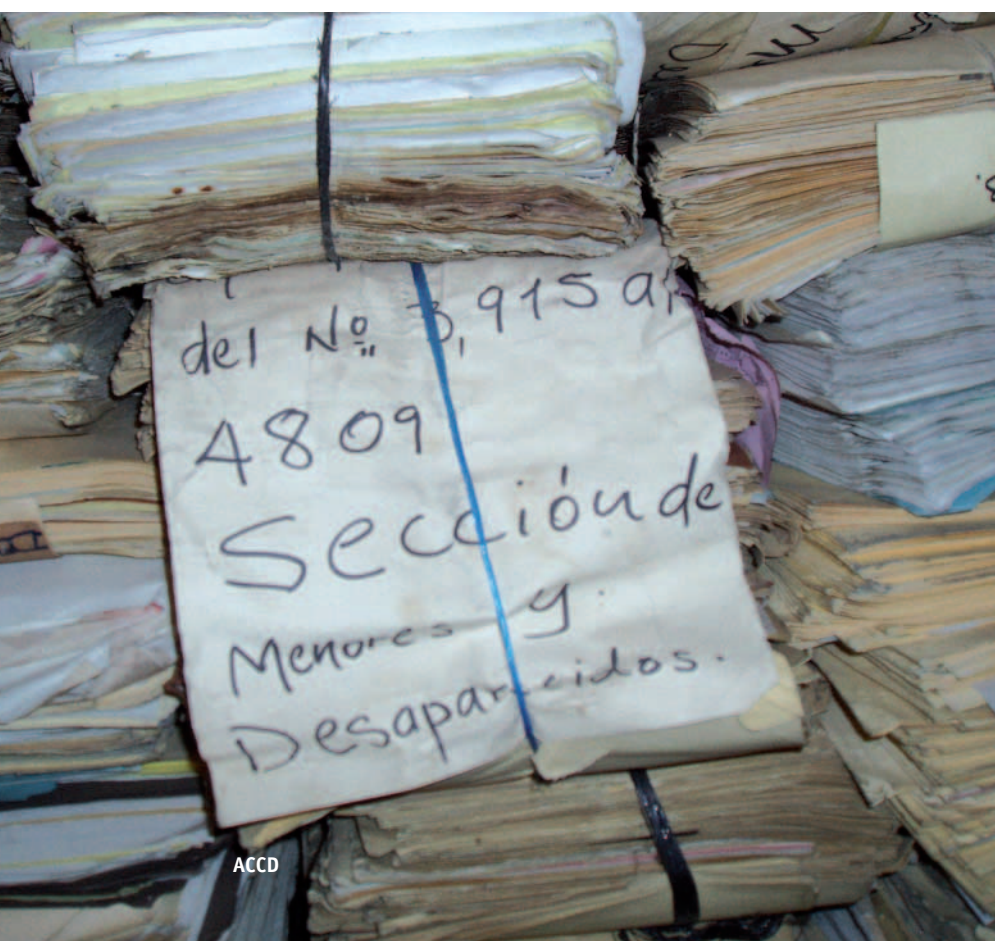 del Nº 3,915 al
4809
Sección de
Menores y
Desaparecidos.
ACCD